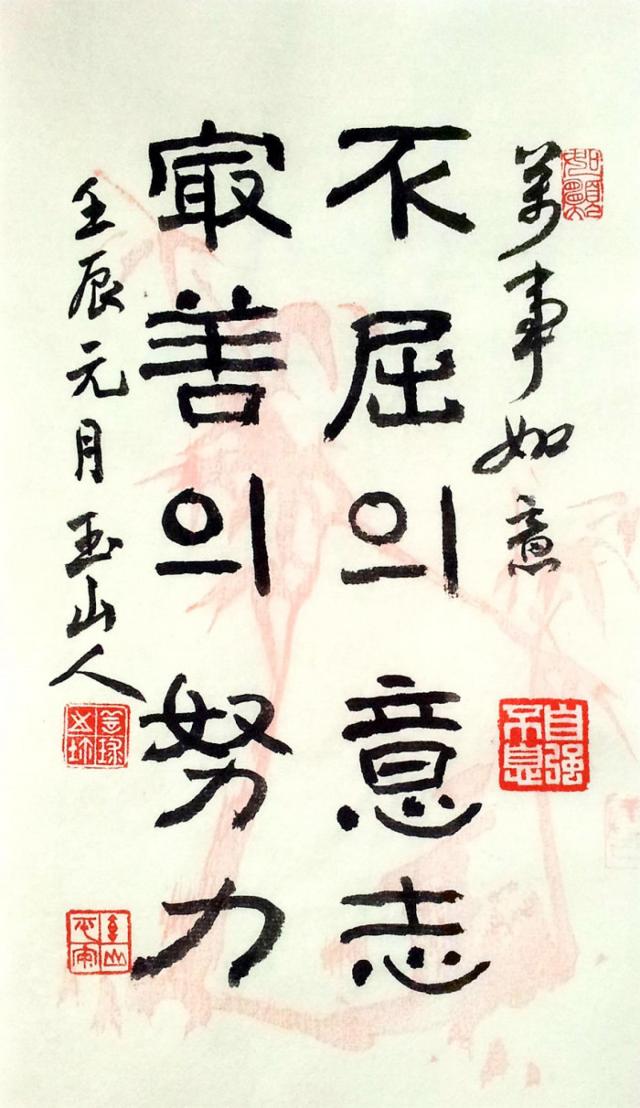 萬事如意
不屈의意志
最善의努力
壬辰元月玉山人
自强不息